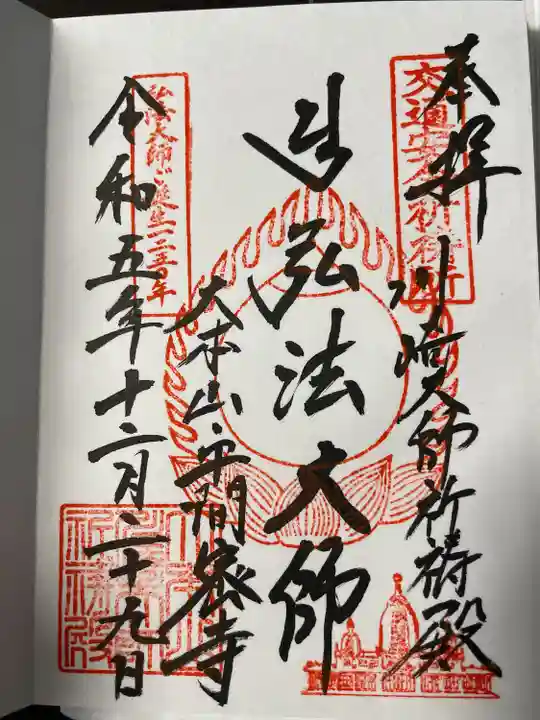 奉拝
交通安全祈祷所
川崎大師祈祷殿
弘法大師
大本山平間密寺
弘法大師ご誕生一二五〇年
令和五年十二月二十九日